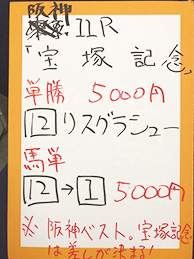 阪神
11R
「宝塚記念」
単勝 5000円
12 リスグラシュー
馬単
12→1 5000円
※阪神ベスト。宝塚記念
は差しが決まる!